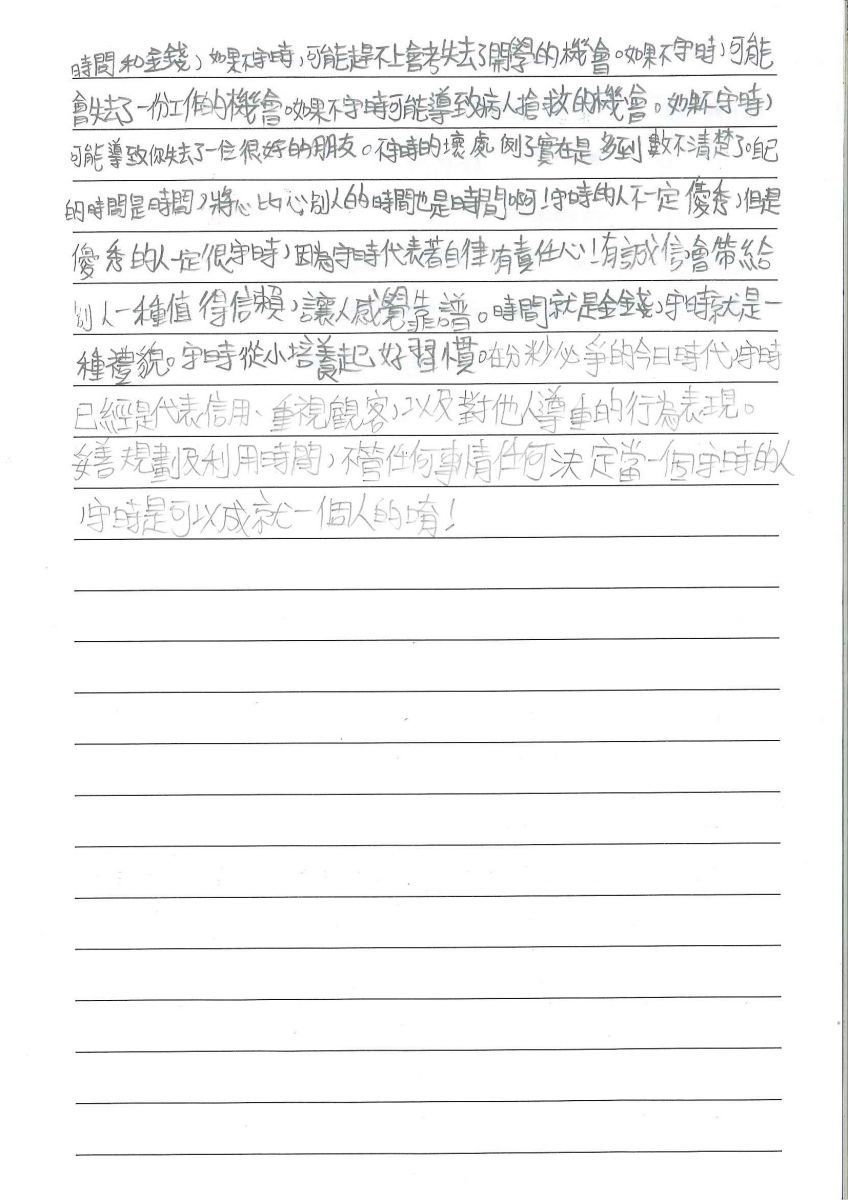 時間和金錢，如果不守時，可能趕不上會考失去了開學的機會。如果不守時，可能
會失去了一份工作的機會。如果不守時可能導致病人搶救的機會。如果不守時，
可能導致你失去了一位很好的朋友。不守時的壞處例子實在是多到數不清楚了。自己
的時間是時間，將心比心別人的時間也是時間啊！守時的人不一定優秀，但是
優秀的人一定很守時，因為守時代表著自律，有責任心！有誠信會帶給
別人一種值得信賴，讓人感覺靠譜。時間就是金錢，守時就是一
種禮貌。守時從小培養起好習慣。在分秒必爭的今日時代，守時
已經是代表信用、重視觀客，以及對他人尊重的行為表現。
妥善規劃及利用時間，不管任何事情任何決定當一個守時的人
，守時是可以成就一個人的唷！